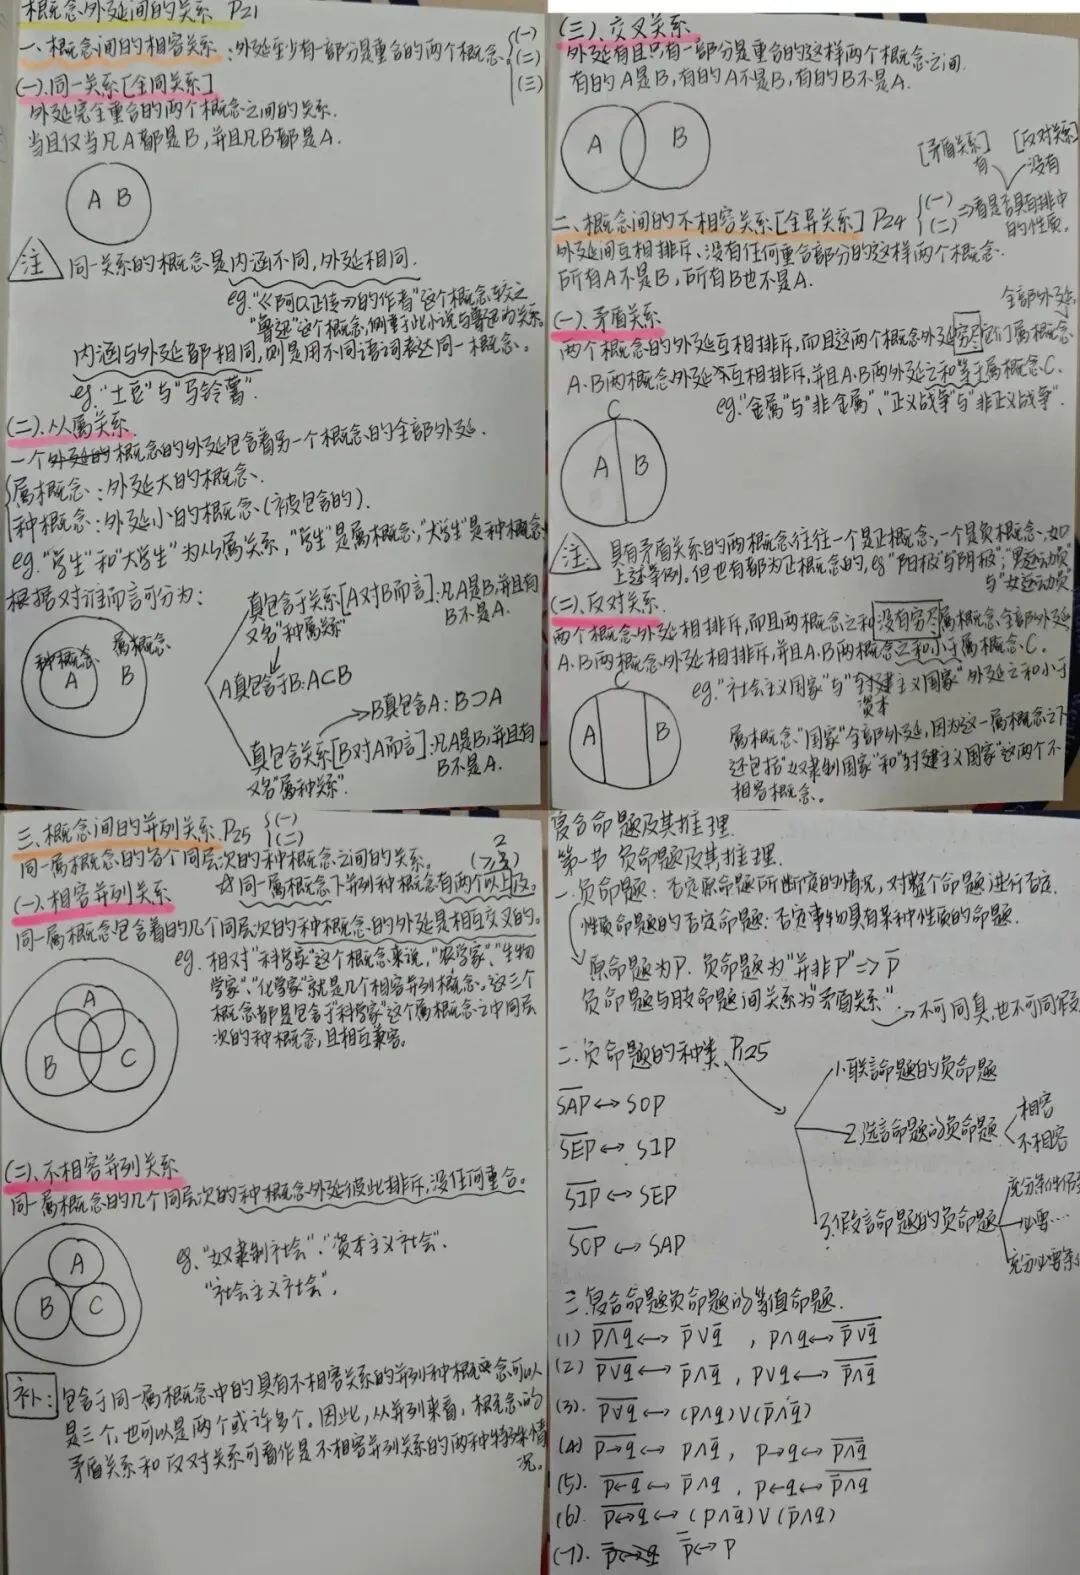 概念外延间的关系 P21
一、概念间的相容关系：外延至少有一部分是重合的两个概念。{(一)
(二)
(三)
(一).同一关系[全同关系]
外延完全重合的两个概念之间的关系.
当且仅当凡A都是B,并且凡B都是A.
A B
注 同一关系的概念是内涵不同,外延相同.
eg."《阿Q正传》的作者"这个概念较之
"鲁迅"这个概念,侧重于此小说与鲁迅的关系。
内涵与外延都相同,则是用不同语词表达同一概念。
eg."土豆"与"马铃薯".
(二).从属关系.
一个概念的外延包含着另一个概念的全部外延.
属概念：外延大的概念.
种概念：外延小的概念(被包含的).
eg."学生"和"大学生"为从属关系,"学生"是属概念,"大学生"是种概念
根据对谁而言可分为：
种概念 属概念
A B
真包含于关系[A对B而言]:凡A是B,并且有
B不是A.
又名"种属关系"
A真包含于B:A⊂B
B真包含A:B⊃A
真包含关系[B对A而言]:凡A是B,并且有
B不是A.
又名"属种关系".
(三).交叉关系.
外延有且只有一部分是重合的这样两个概念之间.
有的A是B,有的A不是B,有的B不是A.
A B
[矛盾关系] [反对关系]
有 没有
二、概念间的不相容关系[全异关系]P24 {(一)
(二) ⇒看是否具有排中
的性质。
外延间互相排斥、没有任何重合部分的这样两个概念.
所有A不是B,所有B也不是A.
全部外延
(一).矛盾关系
两个概念的外延互相排斥,而且这两个概念外延穷尽它们属概念
A.B两概念外延互相排斥,并且A.B两外延之和等于属概念C.
eg."金属"与"非金属"、"正义战争"与"非正义战争".
C
A B
注. 具有矛盾关系的两概念往往一个是正概念,一个是负概念,如
上述举例。但也有都为正概念的,eg"阳极"与"阴极";"男运动员"
与"女运动员"
(二).反对关系.
两个概念外延相排斥,而且两概念之和没有穷尽属概念全部外延
A.B两概念外延相排斥,并且A.B两概念之和小于属概念C。
eg."社会主义国家"与"封建主义国家"外延之和小于
资本
属概念"国家"全部外延,因为这一属概念之下
还包括"奴隶制国家"和"封建主义国家"这两个不
相容概念。
C
A B
三.概念间的并列关系.P25 {(一)
(二)
同一属概念的各个同层次的种概念之间的关系。
2
☆同一属概念下并列种概念有两个以上及。
(一).相容并列关系
同一属概念包含着的几个同层次的种概念的外延是相互交叉的。
eg.相对"科学家"这个概念来说,"农学家"、"生物
学家"、"化学家"就是几个相容并列概念。这三个
概念都是包含于"科学家"这个属概念之中同层
次的种概念,且相互兼容。
A
B C
(二).不相容并列关系
同一属概念的几个同层次的种概念外延彼此排斥,没任何重合。
eg."奴隶制社会"、"资本主义社会"、
"社会主义社会".
A
B C
补：包含于同一属概念中的具有不相容关系的并列种概念可以
是三个,也可以是两个或许多个。因此,从并列来看,概念的
矛盾关系和反对关系可看作是不相容并列关系的两种特殊情
况。
复合命题及其推理.
第一节 负命题及其推理.
一.负命题：否定原命题所断定的情况,对整个命题进行否定.
性质命题的否定命题：否定事物具有某种性质的命题.
原命题为P.负命题为"并非P"⇒P̅
负命题与肢命题间关系为"矛盾关系".→不可同真,也不可同假
二.负命题的种类 P125
1.联言命题的负命题
2.选言命题的负命题 相容
不相容
3.假言命题的负命题 充分条件假言
必要…
充分必要条件
S̅A̅P̅↔SOP
S̅E̅P̅↔SIP
S̅I̅P̅↔SEP
S̅O̅P̅↔SAP
三.复合命题负命题的等值命题.
(1) p̅∧̅q̅↔p̅∨q̅ , p∧q↔‾(p̅∨q̅)
(2) p̅∨̅q̅↔p̅∧q̅ , p∨q↔‾(p̅∧q̅)
(3). ‾(p⊻q)↔(p∧q)∨(p̅∧q̅)
(4) ‾(p→q)↔p∧q̅ , p→q↔‾(p∧q̅)
(5). ‾(p←q)↔p̅∧q , p←q↔‾(p̅∧q)
(6). ‾(p↔q)↔(p∧q̅)∨(p̅∧q)
(7). p̿↔p